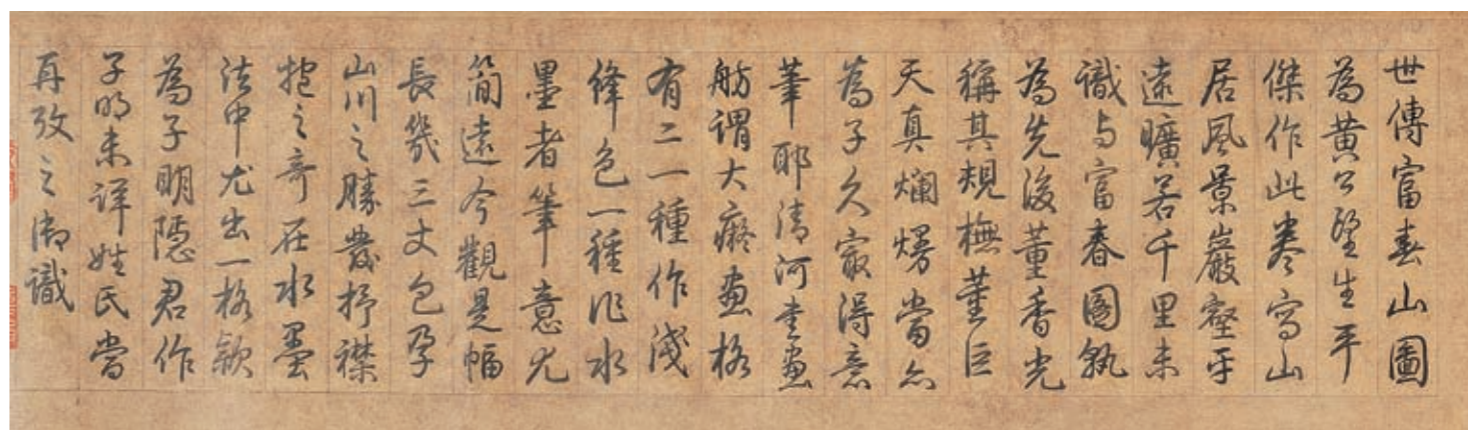 世傳富春山圖
為黃公望生平
傑作此卷寫山
居風景巖壑平
遠曠若千里未
識与富春圖孰
為先後董香光
稱其規橅董巨
天真爛熳當亦
為子久最得意
筆耶清河書畫
舫謂大癡畫格
有二一種作淺
絳色一種作水
墨者筆意尤
簡遠今觀是幅
長幾三丈包孕
山川之勝發抒襟
抱之奇在水墨
法中尤出一格款
為子明隱君作
子明未詳姓氏當
再攷之御識